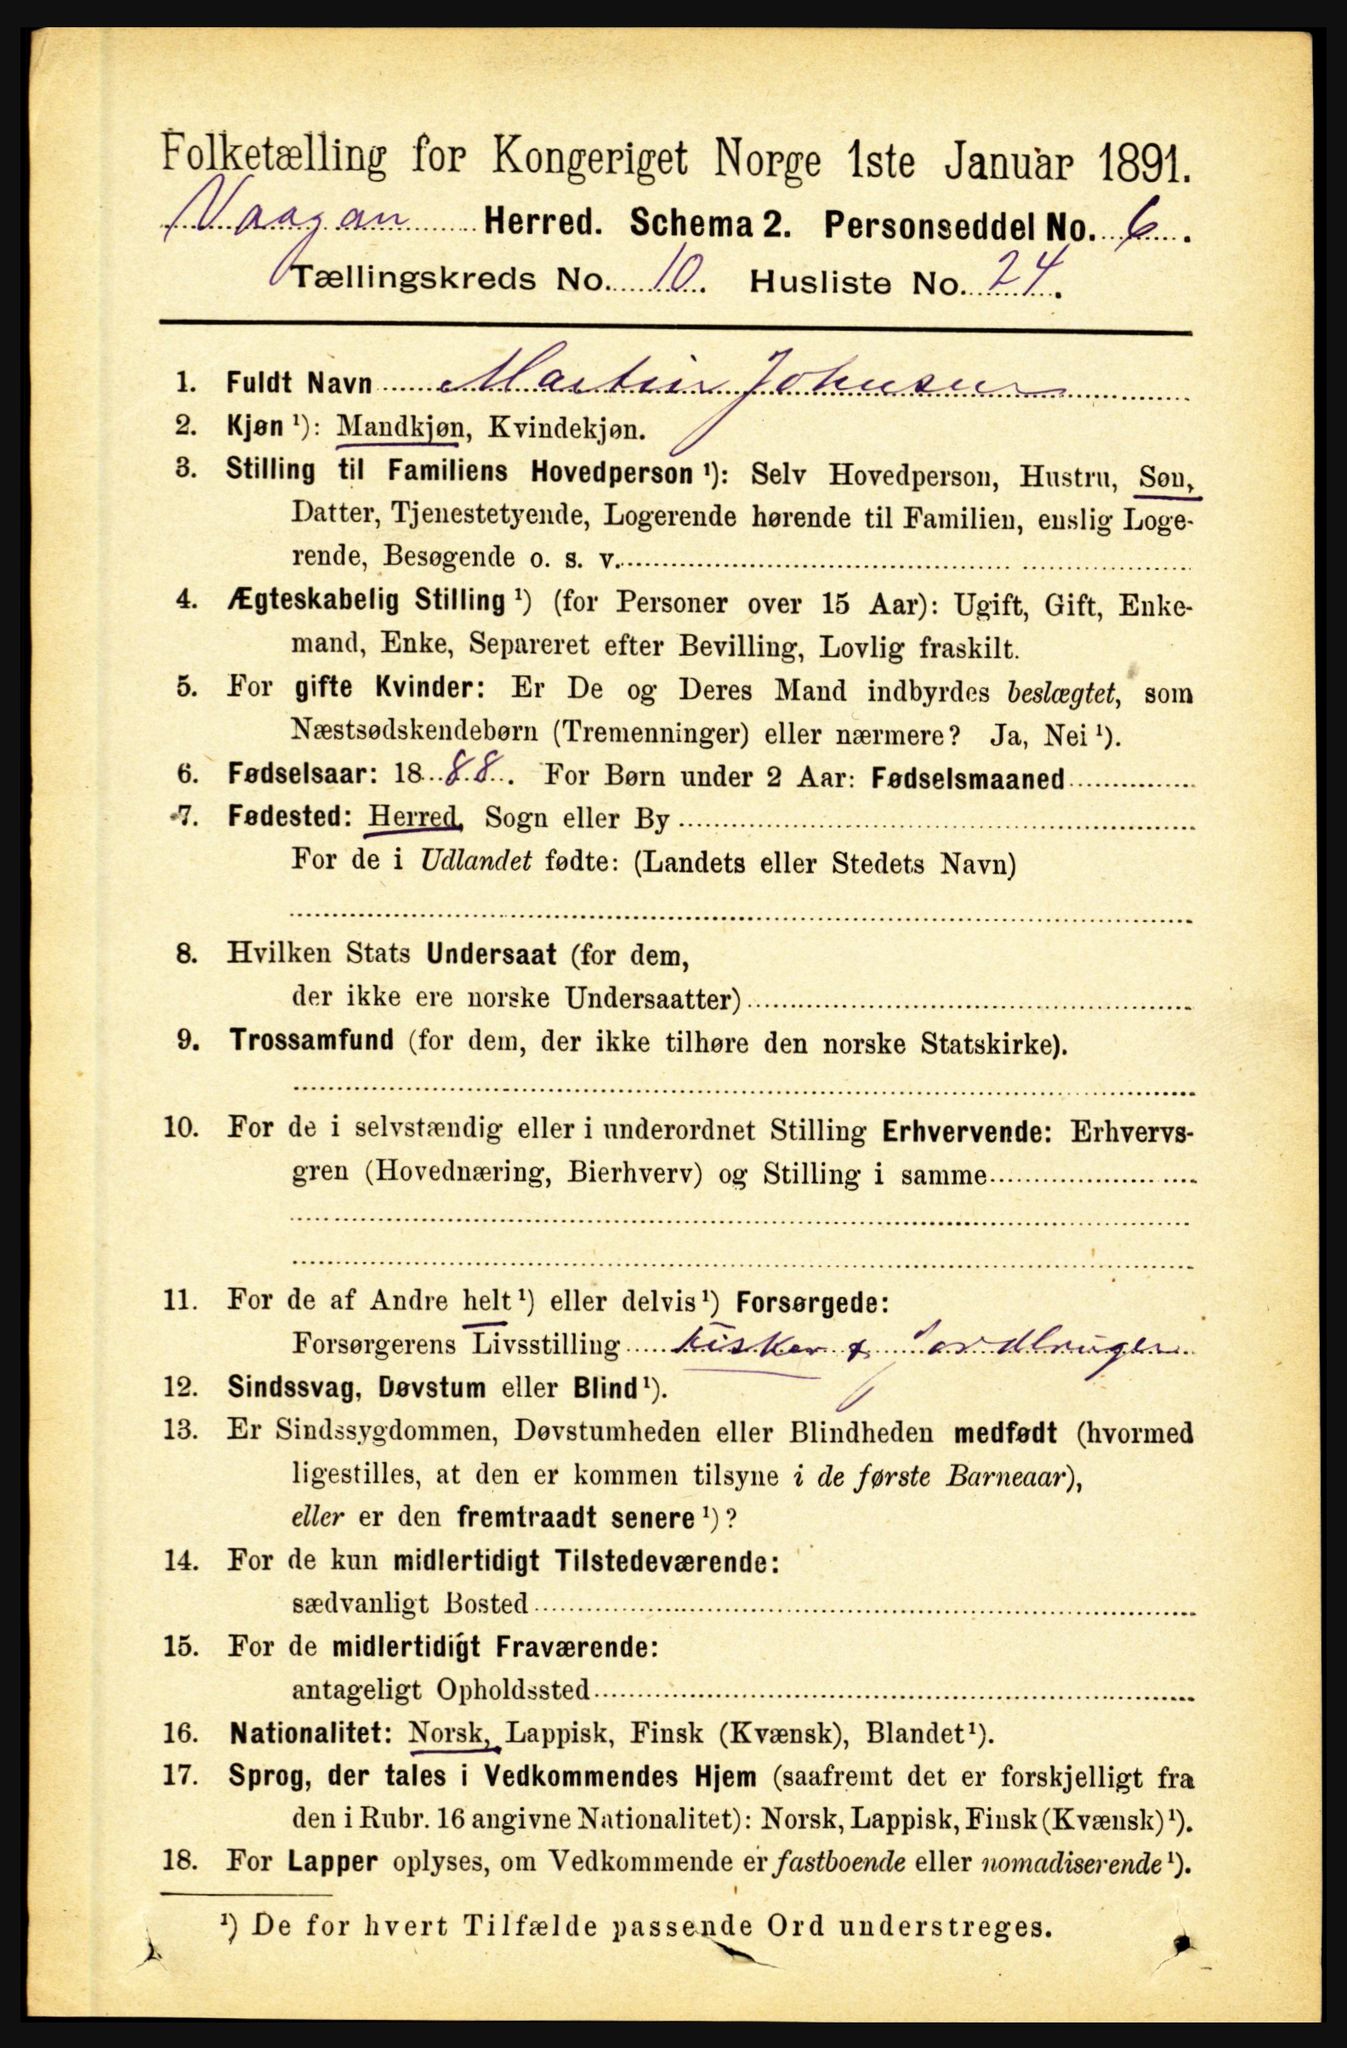 Folketælling for Kongeriget Norge 1ste Januar 1891.
Vaagan Herred. Schema 2. Personseddel No. 6.
Tællingskreds No. 10. Husliste No. 24.
1. Fuldt Navn Martin Johnsen
2. Kjøn ¹): Mandkjøn, Kvindekjøn.
3. Stilling til Familiens Hovedperson ¹): Selv Hovedperson, Hustru, Søn,
Datter, Tjenestetyende, Logerende hørende til Familien, enslig Loge-
rende, Besøgende o. s. v.
4. Ægteskabelig Stilling ¹) (for Personer over 15 Aar): Ugift, Gift, Enke-
mand, Enke, Separeret efter Bevilling, Lovlig fraskilt.
5. For gifte Kvinder: Er De og Deres Mand indbyrdes beslægtet, som
Næstsødskendebørn (Tremenninger) eller nærmere? Ja, Nei ¹).
6. Fødselsaar: 1888. For Børn under 2 Aar: Fødselsmaaned
7. Fødested: Herred, Sogn eller By
For de i Udlandet fødte: (Landets eller Stedets Navn)
8. Hvilken Stats Undersaat (for dem,
der ikke ere norske Undersaatter)
9. Trossamfund (for dem, der ikke tilhøre den norske Statskirke).
10. For de i selvstændig eller i underordnet Stilling Erhvervende: Erhvervs-
gren (Hovednæring, Bierhverv) og Stilling i samme
11. For de af Andre helt ¹) eller delvis ¹) Forsørgede:
Forsørgerens Livsstilling Fisker & Jordbruger
12. Sindssvag, Døvstum eller Blind ¹).
13. Er Sindssygdommen, Døvstumheden eller Blindheden medfødt (hvormed
ligestilles, at den er kommen tilsyne i de første Barneaar),
eller er den fremtraadt senere ¹)?
14. For de kun midlertidigt Tilstedeværende:
sædvanligt Bosted
15. For de midlertidigt Fraværende:
antageligt Opholdssted
16. Nationalitet: Norsk, Lappisk, Finsk (Kvænsk), Blandet ¹).
17. Sprog, der tales i Vedkommendes Hjem (saafremt det er forskjelligt fra
den i Rubr. 16 angivne Nationalitet): Norsk, Lappisk, Finsk (Kvænsk) ¹).
18. For Lapper oplyses, om Vedkommende er fastboende eller nomadiserende ¹).
¹) De for hvert Tilfælde passende Ord understreges.